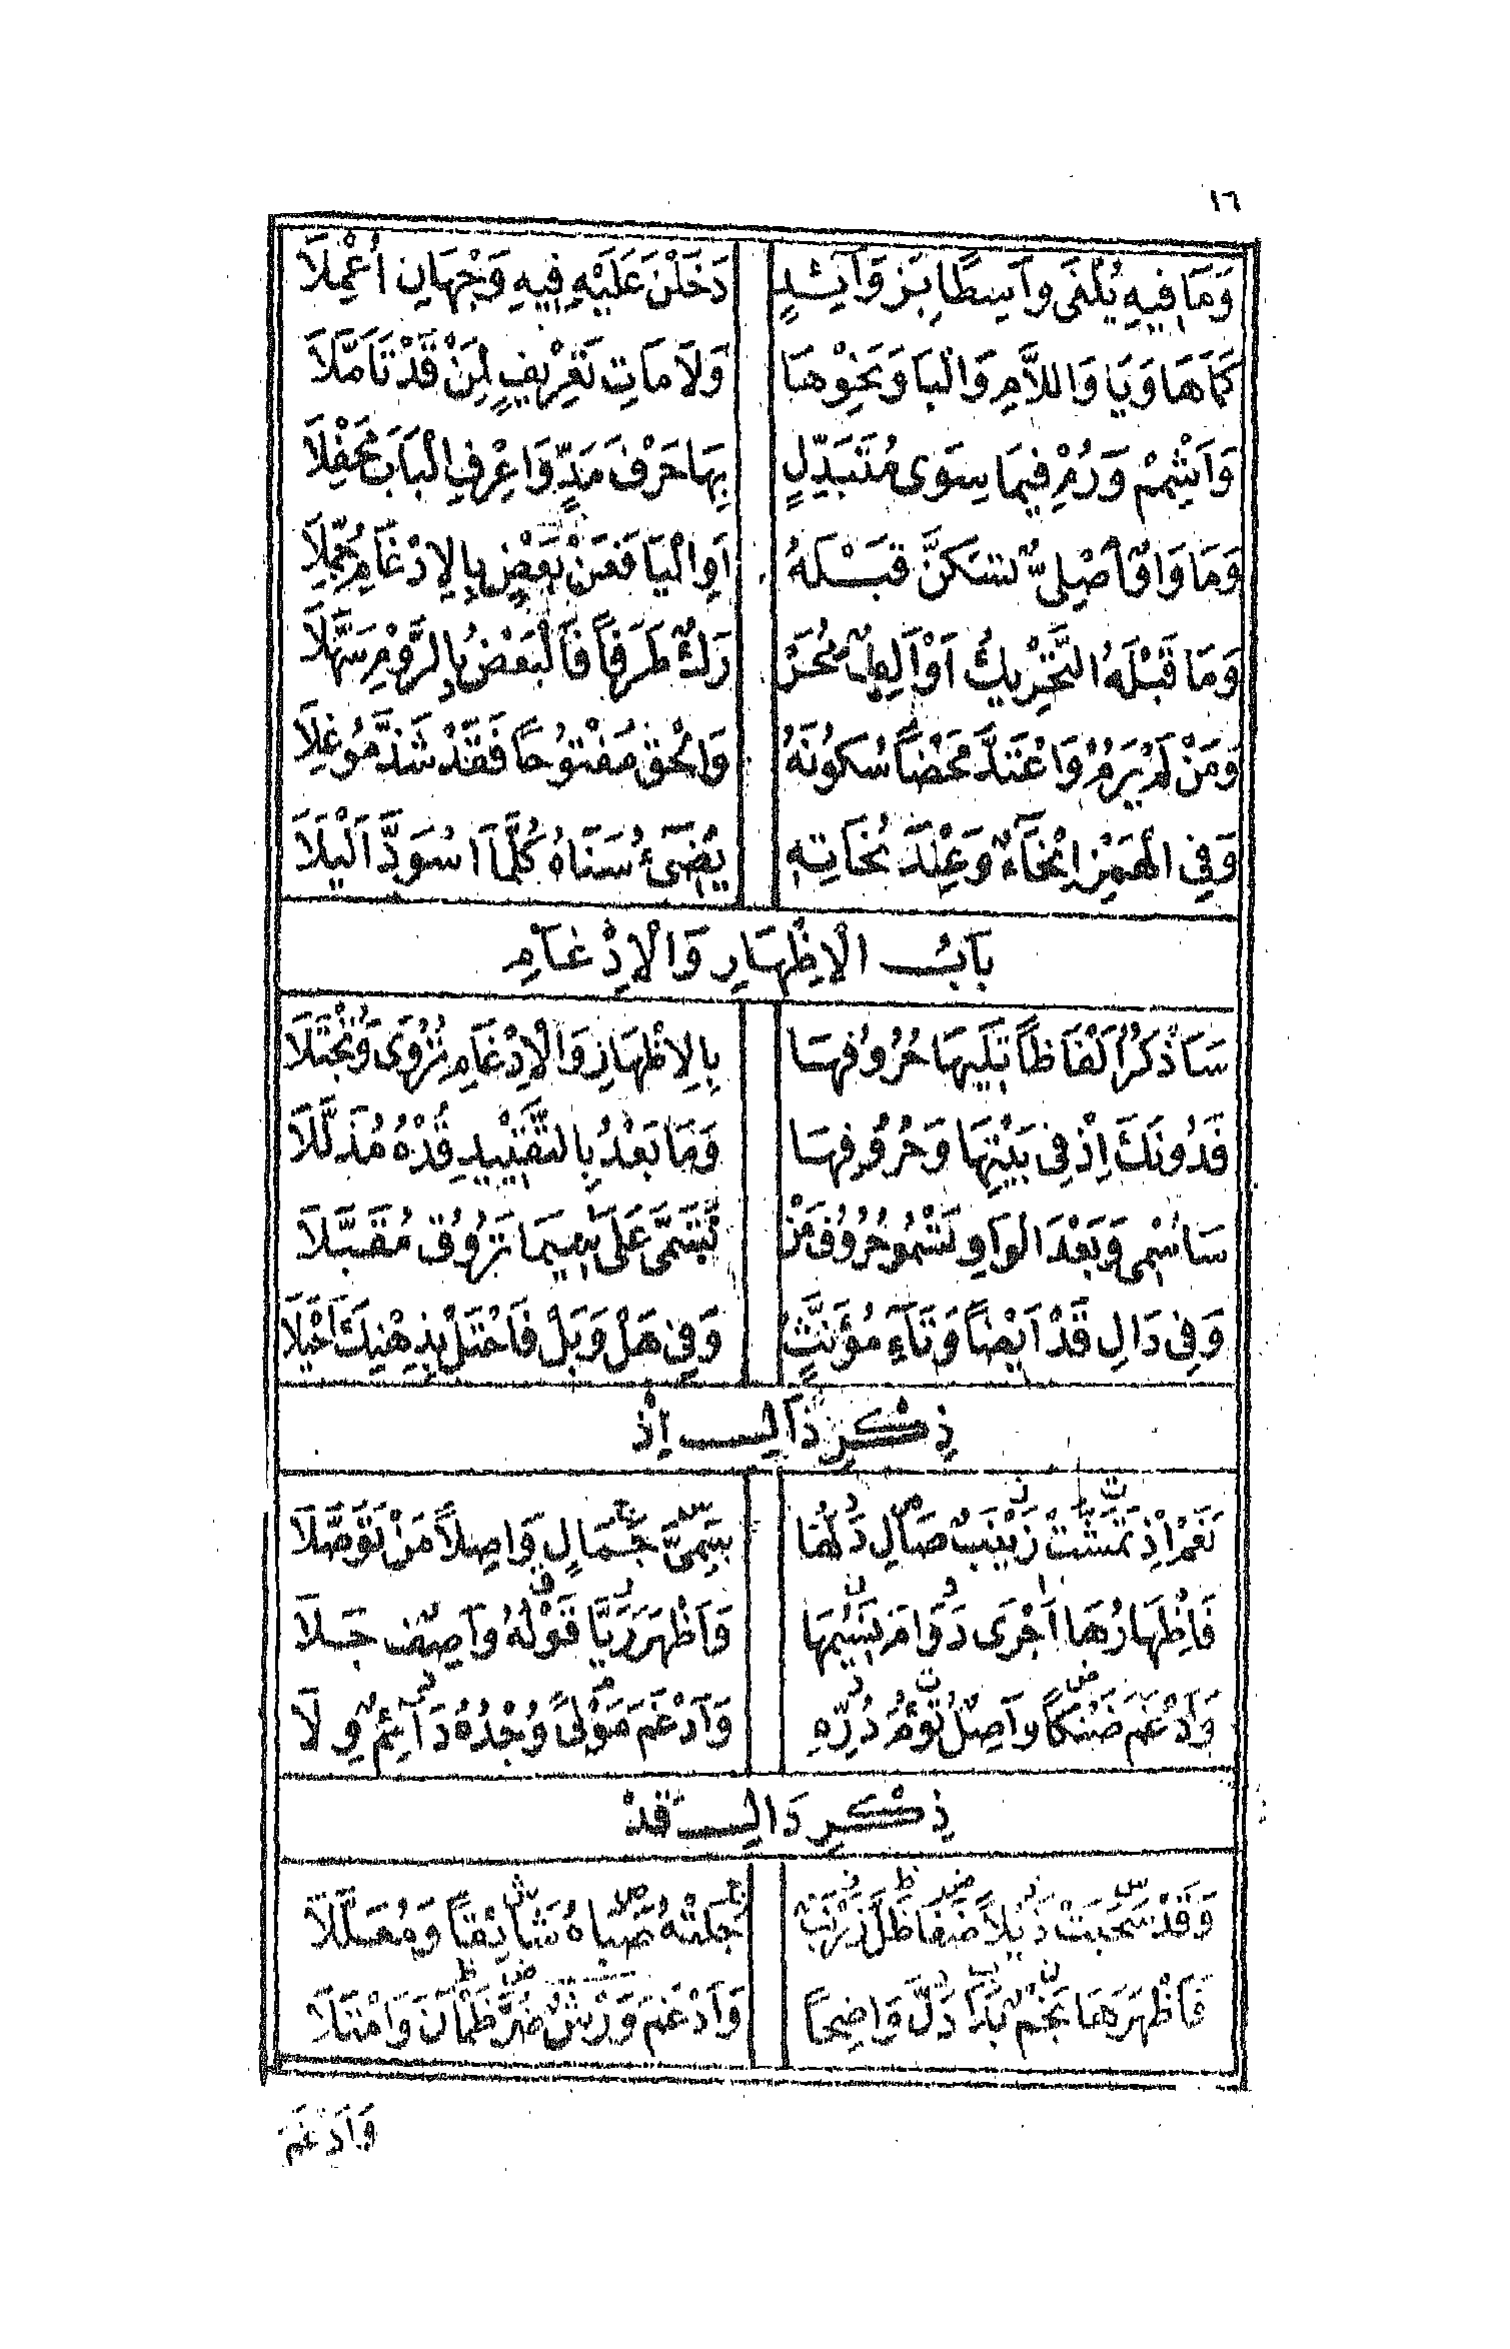 ١٦
وَمَا فِيهِ يُلْفَى وَاسِطًا بِزَوَائِدٍ دَخَلْنَ عَلَيْهِ فِيهِ وَجْهَانِ أُعْمِلَا
كَمَا هَا وَيَا وَاللَّامِ وَالْبَا وَنَحْوِهَا وَلَامَاتِ تَعْرِيفٍ لِمَنْ قَدْ تَأَمَّلَا
وَأَشْمِمْ وَرُمْ فِيمَا سِوَى مُتَبَدِّلٍ بِهَا حَرْفَ مَدٍّ وَاعْرِفِ الْبَابَ مَحْفِلَا
وَمَا وَاوٌ أَصْلِيٌّ تَسَكَّنَ قَبْلَهُ أَوِ الْيَا فَعَنْ بَعْضٍ بِالْإِدْغَامِ حُمِّلَا
وَمَا قَبْلَهُ التَّحْرِيكُ أَوْ أَلِفٌ مُحَرْ رَكٌ طَرَفًا فَالْبَعْضُ بِالرَّوْمِ سَهَّلَا
وَمَنْ لَمْ يَرُمْ وَاعْتَدَّ مَحْضًا سُكُونَهُ وَأَلْحَقَ مَفْتُوحًا فَقَدْ شَذَّ مُوغِلَا
وَفِي الْهَمْزِ أَنْحَاءٌ وَعِنْدَ نُحَاتِهِ يُضِيءُ سَنَاهُ كُلَّمَا اسْوَدَّ أَلْيَلَا
بَابُ الْإِظْهَارِ وَالْإِدْغَامِ
سَأَذْكُرُ أَلْفَاظًا تَلِيهَا حُرُوفُهَا بِالْإِظْهَارِ وَالْإِدْغَامِ تُرْوَى وَتُجْتَلَا
فَدُونَكَ إِذْ فِي بَيْتِهَا وَحُرُوفِهَا وَمَا بَعْدُ بِالتَّقْيِيدِ قُدْهُ مُذَلَّلَا
سَأُسْمِي وَبَعْدَ الْوَاوِ تَسْمُو حُرُوفُ مَنْ تَسَمَّى عَلَى سِيمَا تَرُوقُ مُقَبَّلَا
وَفِي دَالِ قَدْ أَيْضًا وَتَاءِ مُؤَنَّثٍ وَفِي هَلْ وَبَلْ فَاحْتَلْ بِذِهْنِكَ أَحْيَلَا
ذِكْرُ ذَالِ إِذْ
نَعَمْ إِذْ تَمَشَّتْ زَيْنَبٌ صَالَ دَلُّهَا سَمِيَّ جَمَالٍ وَاصِلًا مَنْ تَوَصَّلَا
فَإِظْهَارُهَا أَجْرَى دَوَامَ نَسِيمِهَا وَأَظْهَرَ رَيَّا قَوْلِهُ وَاصِفٌ جَلَا
وَأَدْغَمَ ضَنْكًا وَاصِلٌ تُومَ دُرِّهِ وَأَدْغَمَ مَوْلًى وُجْدُهُ دَائِمٌ وِلَا
ذِكْرُ دَالِ قَدْ
وَقَدْ سَحَبَتْ ذَيْلًا ضَفَا ظَلَّ زَرْنَبٌ جَلَتْهُ صَبَاهُ شَائِقًا وَمُعَلَّلَا
فَأَظْهَرَهَا نَجْمٌ بَدَا دَلَّ وَاضِحًا وَأَدْغَمَ وَرْشٌ ضَرَّ ظَمْآنَ وَامْتَلَا
وَأَدْغَمَ